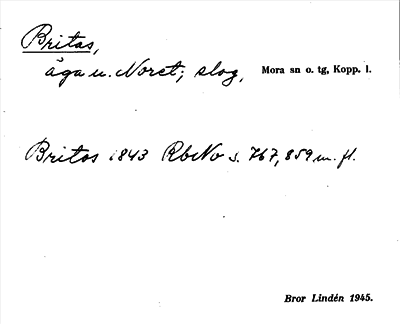 Britas,
äga u. Noret; slog,
Mora sn o. tg, Kopp. l.
Britos 1843 RbNo s. 767, 859 m. fl.
Bror Lindén 1945.